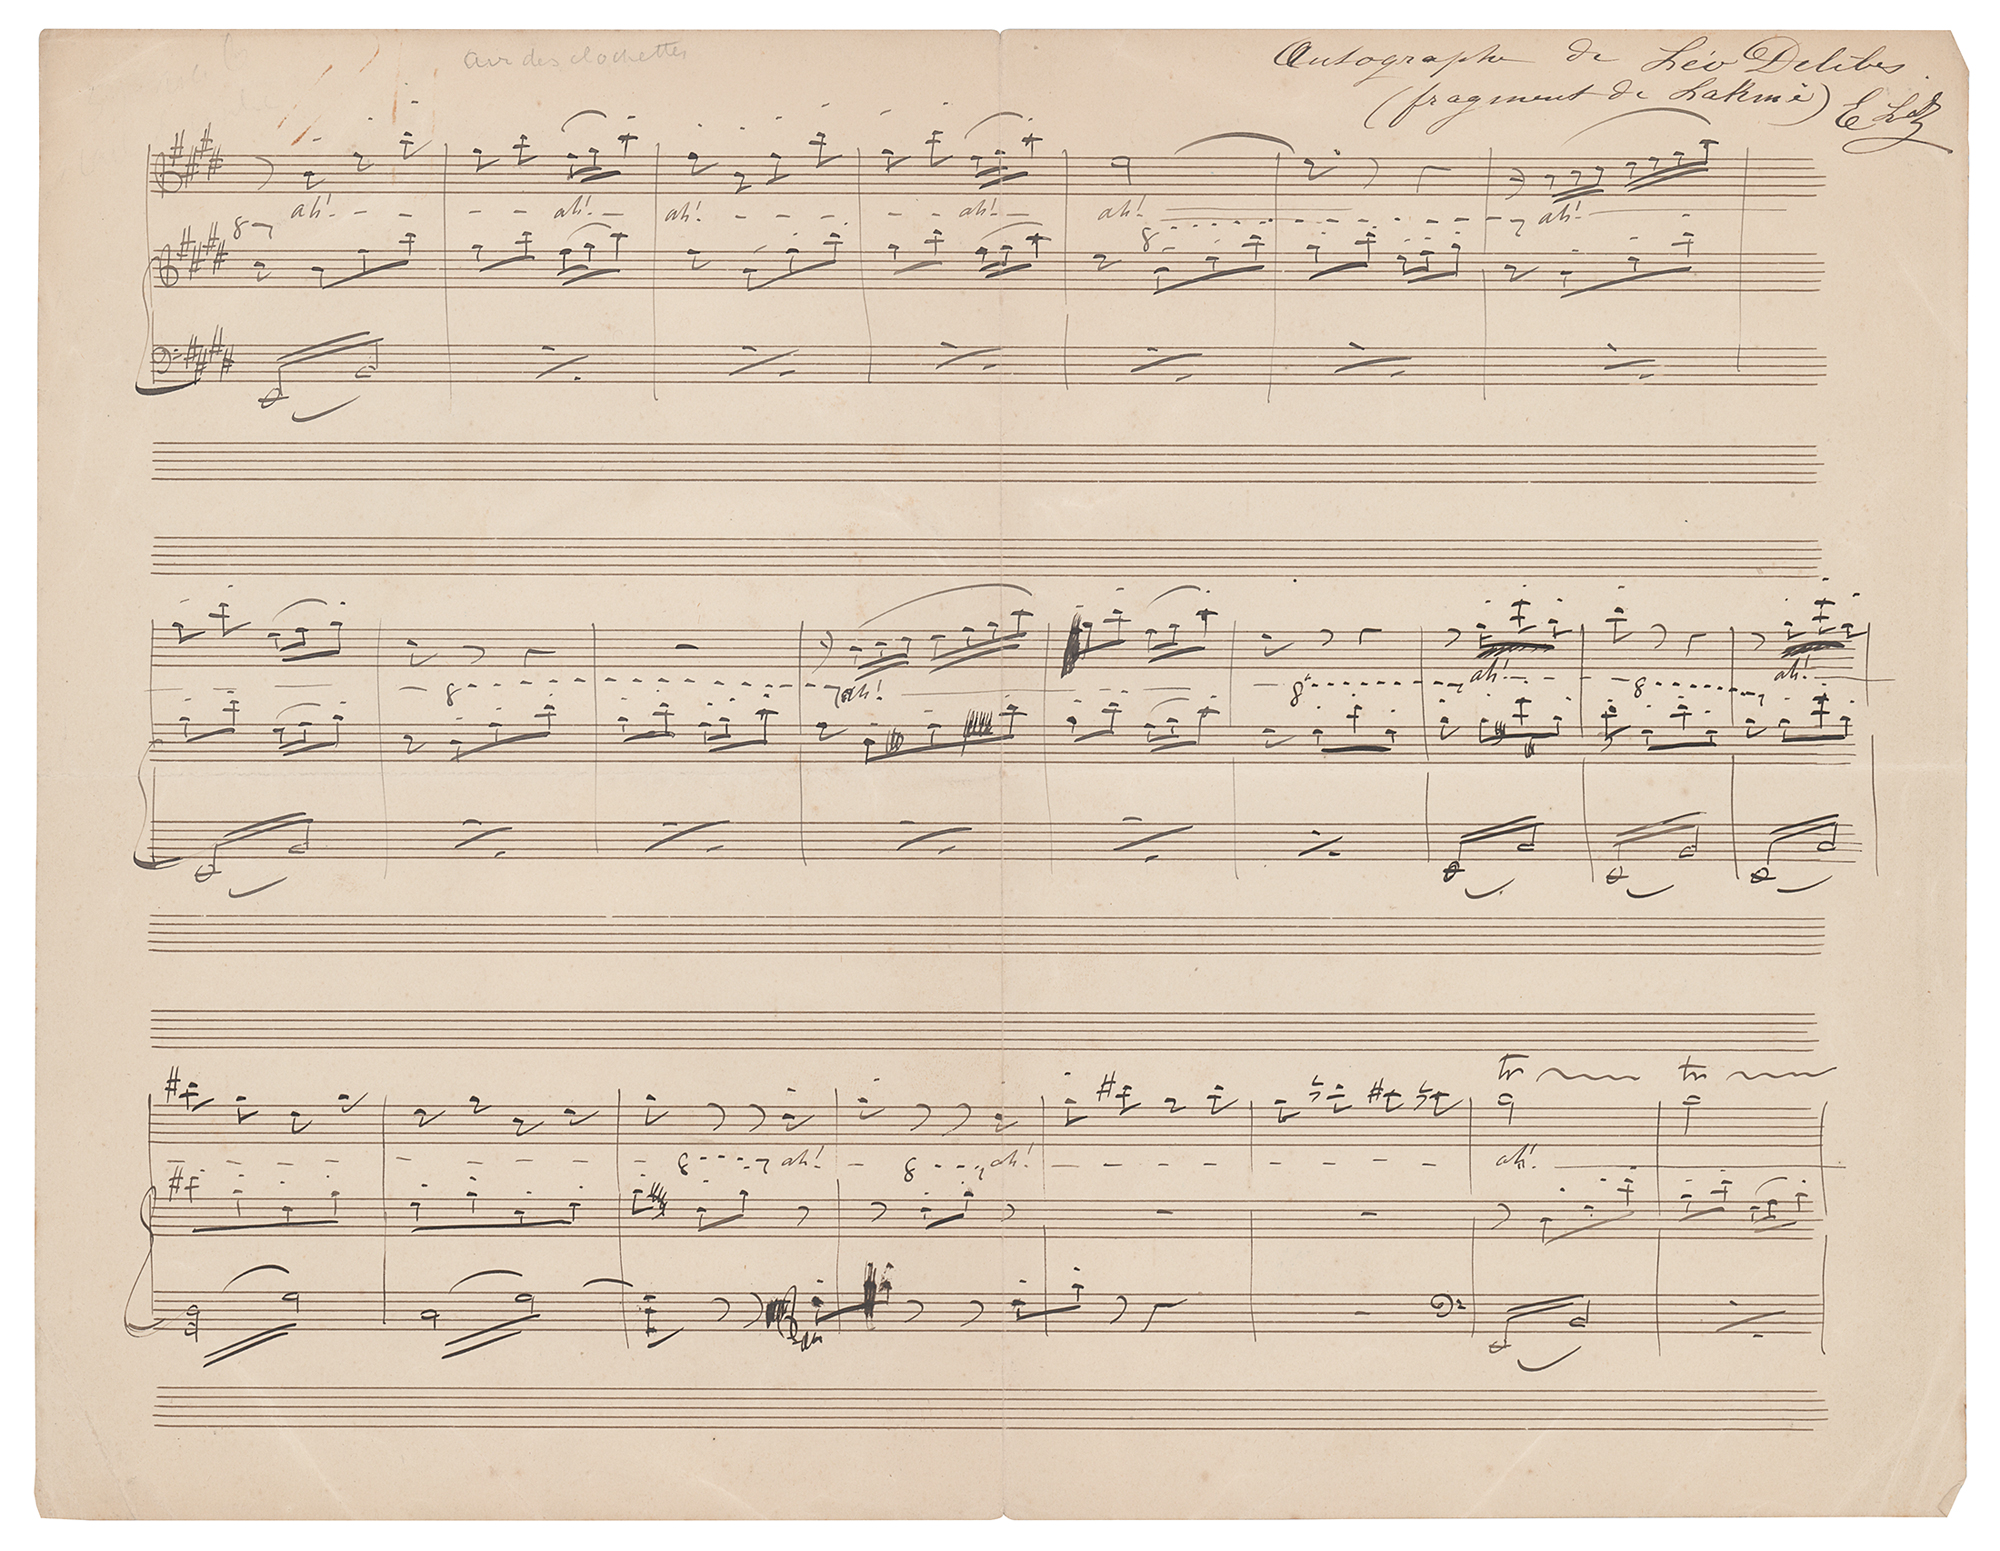 air des clochettes
Autographe de Léo Delibes
(fragment de Lakmé)
ah! ah! ah! ah! ah! ah!
8
8
ah! ah! ah!
8 8 8
tr tr
8 ah! 8 ah! ah!